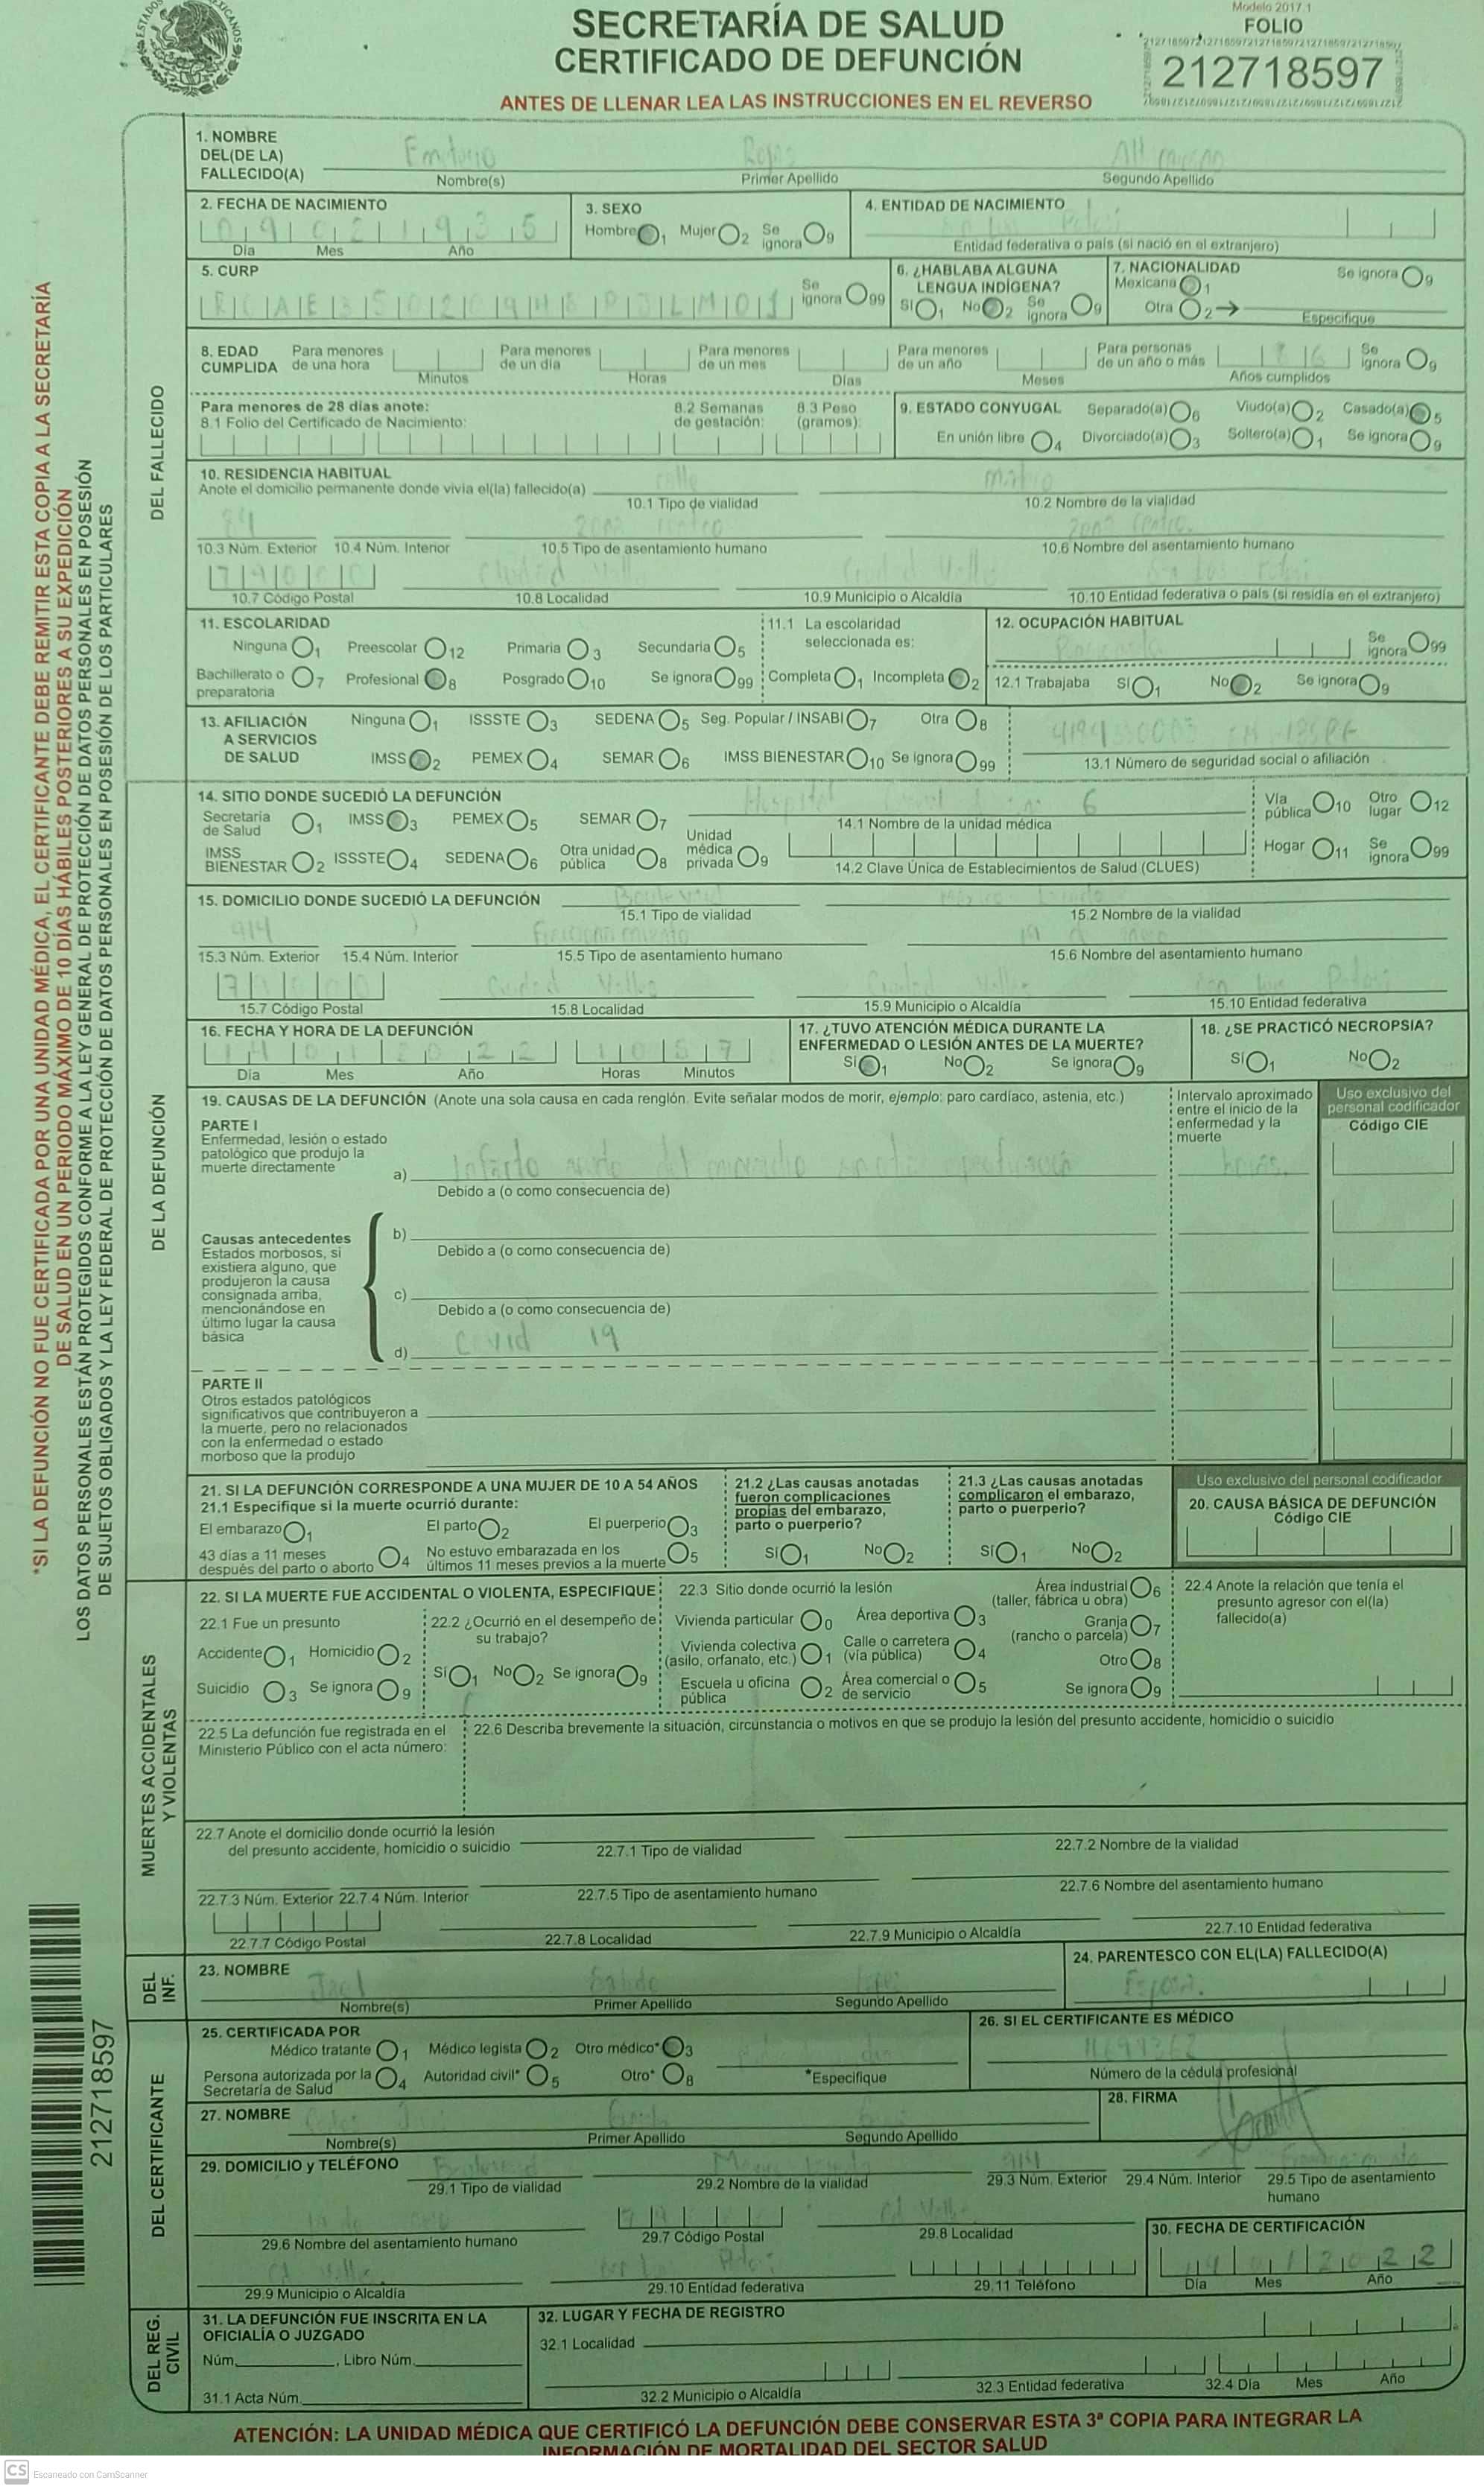 ESTADOS MEXICANOS
SECRETARÍA DE SALUD
CERTIFICADO DE DEFUNCIÓN
ANTES DE LLENAR LEA LAS INSTRUCCIONES EN EL REVERSO
Modelo 2017.1
FOLIO
212718597
*SI LA DEFUNCIÓN NO FUE CERTIFICADA POR UNA UNIDAD MÉDICA, EL CERTIFICANTE DEBE REMITIR ESTA COPIA A LA SECRETARÍA
DE SALUD EN UN PERIODO MÁXIMO DE 10 DÍAS HÁBILES POSTERIORES A SU EXPEDICIÓN
LOS DATOS PERSONALES ESTÁN PROTEGIDOS CONFORME A LA LEY GENERAL DE PROTECCIÓN DE DATOS PERSONALES EN POSESIÓN
DE SUJETOS OBLIGADOS Y LA LEY FEDERAL DE PROTECCIÓN DE DATOS PERSONALES EN POSESIÓN DE LOS PARTICULARES
212718597
DEL FALLECIDO
1. NOMBRE
DEL(DE LA)
FALLECIDO(A)
Rojas
Nombre(s) Primer Apellido Segundo Apellido
2. FECHA DE NACIMIENTO
09 02 1935
Día Mes Año
3. SEXO
Hombre 1 Mujer 2 Se ignora 9
4. ENTIDAD DE NACIMIENTO
Potosí
Entidad federativa o país (si nació en el extranjero)
5. CURP
Se ignora 99
6. ¿HABLABA ALGUNA
LENGUA INDÍGENA?
Sí 1 No 2 Se ignora 9
7. NACIONALIDAD
Mexicana 1 Se ignora 9
Otra 2 → Especifique
8. EDAD
CUMPLIDA
Para menores de una hora Minutos
Para menores de un día Horas
Para menores de un mes Días
Para menores de un año Meses
Para personas de un año o más Años cumplidos
Se ignora 9
Para menores de 28 días anote:
8.1 Folio del Certificado de Nacimiento:
8.2 Semanas de gestación:
8.3 Peso (gramos):
9. ESTADO CONYUGAL Separado(a) 6 Viudo(a) 2 Casado(a) 5
En unión libre 4 Divorciado(a) 3 Soltero(a) 1 Se ignora 9
10. RESIDENCIA HABITUAL
Anote el domicilio permanente donde vivía el(la) fallecido(a)
calle
10.1 Tipo de vialidad 10.2 Nombre de la vialidad
zona centro zona centro
10.3 Núm. Exterior 10.4 Núm. Interior 10.5 Tipo de asentamiento humano 10.6 Nombre del asentamiento humano
79000 Ciudad Valles Ciudad Valles San Luis Potosí
10.7 Código Postal 10.8 Localidad 10.9 Municipio o Alcaldía 10.10 Entidad federativa o país (si residía en el extranjero)
11. ESCOLARIDAD
Ninguna 1 Preescolar 12 Primaria 3 Secundaria 5
Bachillerato o preparatoria 7 Profesional 8 Posgrado 10 Se ignora 99
11.1 La escolaridad
seleccionada es:
Completa 1 Incompleta 2
12. OCUPACIÓN HABITUAL
Se ignora 99
12.1 Trabajaba Sí 1 No 2 Se ignora 9
13. AFILIACIÓN
A SERVICIOS
DE SALUD
Ninguna 1 ISSSTE 3 SEDENA 5 Seg. Popular / INSABI 7 Otra 8
IMSS 2 PEMEX 4 SEMAR 6 IMSS BIENESTAR 10 Se ignora 99
13.1 Número de seguridad social o afiliación
DE LA DEFUNCIÓN
14. SITIO DONDE SUCEDIÓ LA DEFUNCIÓN
Secretaría de Salud 1 IMSS 3 PEMEX 5 SEMAR 7
IMSS BIENESTAR 2 ISSSTE 4 SEDENA 6 Otra unidad pública 8 Unidad médica privada 9
Hospital 6
14.1 Nombre de la unidad médica
14.2 Clave Única de Establecimientos de Salud (CLUES)
Vía pública 10 Otro lugar 12
Hogar 11 Se ignora 99
15. DOMICILIO DONDE SUCEDIÓ LA DEFUNCIÓN
Boulevard
15.1 Tipo de vialidad 15.2 Nombre de la vialidad
914 Fraccionamiento
15.3 Núm. Exterior 15.4 Núm. Interior 15.5 Tipo de asentamiento humano 15.6 Nombre del asentamiento humano
Ciudad Valles Ciudad Valles San Luis Potosí
15.7 Código Postal 15.8 Localidad 15.9 Municipio o Alcaldía 15.10 Entidad federativa
16. FECHA Y HORA DE LA DEFUNCIÓN
14 01 2022 10 57
Día Mes Año Horas Minutos
17. ¿TUVO ATENCIÓN MÉDICA DURANTE LA
ENFERMEDAD O LESIÓN ANTES DE LA MUERTE?
Sí 1 No 2 Se ignora 9
18. ¿SE PRACTICÓ NECROPSIA?
Sí 1 No 2
19. CAUSAS DE LA DEFUNCIÓN (Anote una sola causa en cada renglón. Evite señalar modos de morir, ejemplo: paro cardíaco, astenia, etc.)
Intervalo aproximado
entre el inicio de la
enfermedad y la
muerte
Uso exclusivo del
personal codificador
Código CIE
PARTE I
Enfermedad, lesión o estado
patológico que produjo la
muerte directamente
a) Infarto agudo del miocardio horas
Debido a (o como consecuencia de)
Causas antecedentes
Estados morbosos, si
existiera alguno, que
produjeron la causa
consignada arriba,
mencionándose en
último lugar la causa
básica
b)
Debido a (o como consecuencia de)
c)
Debido a (o como consecuencia de)
d) Covid 19
PARTE II
Otros estados patológicos
significativos que contribuyeron a
la muerte, pero no relacionados
con la enfermedad o estado
morboso que la produjo
21. SI LA DEFUNCIÓN CORRESPONDE A UNA MUJER DE 10 A 54 AÑOS
21.1 Especifique si la muerte ocurrió durante:
El embarazo 1 El parto 2 El puerperio 3
43 días a 11 meses después del parto o aborto 4 No estuvo embarazada en los últimos 11 meses previos a la muerte 5
21.2 ¿Las causas anotadas
fueron complicaciones
propias del embarazo,
parto o puerperio?
Sí 1 No 2
21.3 ¿Las causas anotadas
complicaron el embarazo,
parto o puerperio?
Sí 1 No 2
Uso exclusivo del personal codificador
20. CAUSA BÁSICA DE DEFUNCIÓN
Código CIE
MUERTES ACCIDENTALES
Y VIOLENTAS
22. SI LA MUERTE FUE ACCIDENTAL O VIOLENTA, ESPECIFIQUE
22.1 Fue un presunto
Accidente 1 Homicidio 2
Suicidio 3 Se ignora 9
22.2 ¿Ocurrió en el desempeño de
su trabajo?
Sí 1 No 2 Se ignora 9
22.3 Sitio donde ocurrió la lesión
Vivienda particular 0 Área deportiva 3 Área industrial (taller, fábrica u obra) 6
Vivienda colectiva (asilo, orfanato, etc.) 1 Calle o carretera (vía pública) 4 Granja (rancho o parcela) 7
Escuela u oficina pública 2 Área comercial o de servicio 5 Otro 8
Se ignora 9
22.4 Anote la relación que tenía el
presunto agresor con el(la)
fallecido(a)
22.5 La defunción fue registrada en el
Ministerio Público con el acta número:
22.6 Describa brevemente la situación, circunstancia o motivos en que se produjo la lesión del presunto accidente, homicidio o suicidio
22.7 Anote el domicilio donde ocurrió la lesión
del presunto accidente, homicidio o suicidio
22.7.1 Tipo de vialidad 22.7.2 Nombre de la vialidad
22.7.3 Núm. Exterior 22.7.4 Núm. Interior 22.7.5 Tipo de asentamiento humano 22.7.6 Nombre del asentamiento humano
22.7.7 Código Postal 22.7.8 Localidad 22.7.9 Municipio o Alcaldía 22.7.10 Entidad federativa
DEL INF.
23. NOMBRE
Nombre(s) Primer Apellido Segundo Apellido
24. PARENTESCO CON EL(LA) FALLECIDO(A)
Esposa
DEL CERTIFICANTE
25. CERTIFICADA POR
Médico tratante 1 Médico legista 2 Otro médico* 3
Persona autorizada por la Secretaría de Salud 4 Autoridad civil* 5 Otro* 8
*Especifique
26. SI EL CERTIFICANTE ES MÉDICO
Número de la cédula profesional
27. NOMBRE
Nombre(s) Primer Apellido Segundo Apellido
28. FIRMA
29. DOMICILIO y TELÉFONO
Boulevard 914
29.1 Tipo de vialidad 29.2 Nombre de la vialidad 29.3 Núm. Exterior 29.4 Núm. Interior 29.5 Tipo de asentamiento humano
Cd Valles
29.6 Nombre del asentamiento humano 29.7 Código Postal 29.8 Localidad
Cd Valles San Luis Potosí
29.9 Municipio o Alcaldía 29.10 Entidad federativa 29.11 Teléfono
30. FECHA DE CERTIFICACIÓN
14 01 2022
Día Mes Año
DEL REG. CIVIL
31. LA DEFUNCIÓN FUE INSCRITA EN LA
OFICIALÍA O JUZGADO
Núm. , Libro Núm.
31.1 Acta Núm.
32. LUGAR Y FECHA DE REGISTRO
32.1 Localidad
32.2 Municipio o Alcaldía 32.3 Entidad federativa 32.4 Día Mes Año
ATENCIÓN: LA UNIDAD MÉDICA QUE CERTIFICÓ LA DEFUNCIÓN DEBE CONSERVAR ESTA 3ª COPIA PARA INTEGRAR LA
INFORMACIÓN DE MORTALIDAD DEL SECTOR SALUD
CS Escaneado con CamScanner